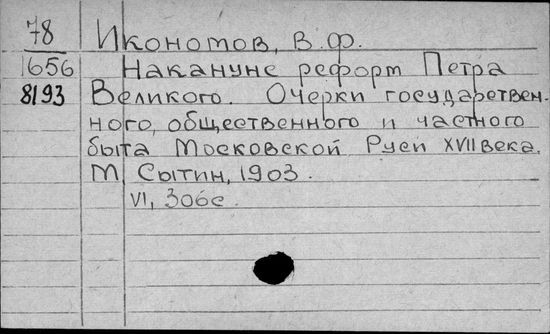 78 Икономов, В.Ф.
1656 Накануне реформ Петра
8193 Великого. Очерки государствен-
ного, общественного и частного
быта Московской Руси XVII века.
М Сытин, 1903.
VI, 306с.